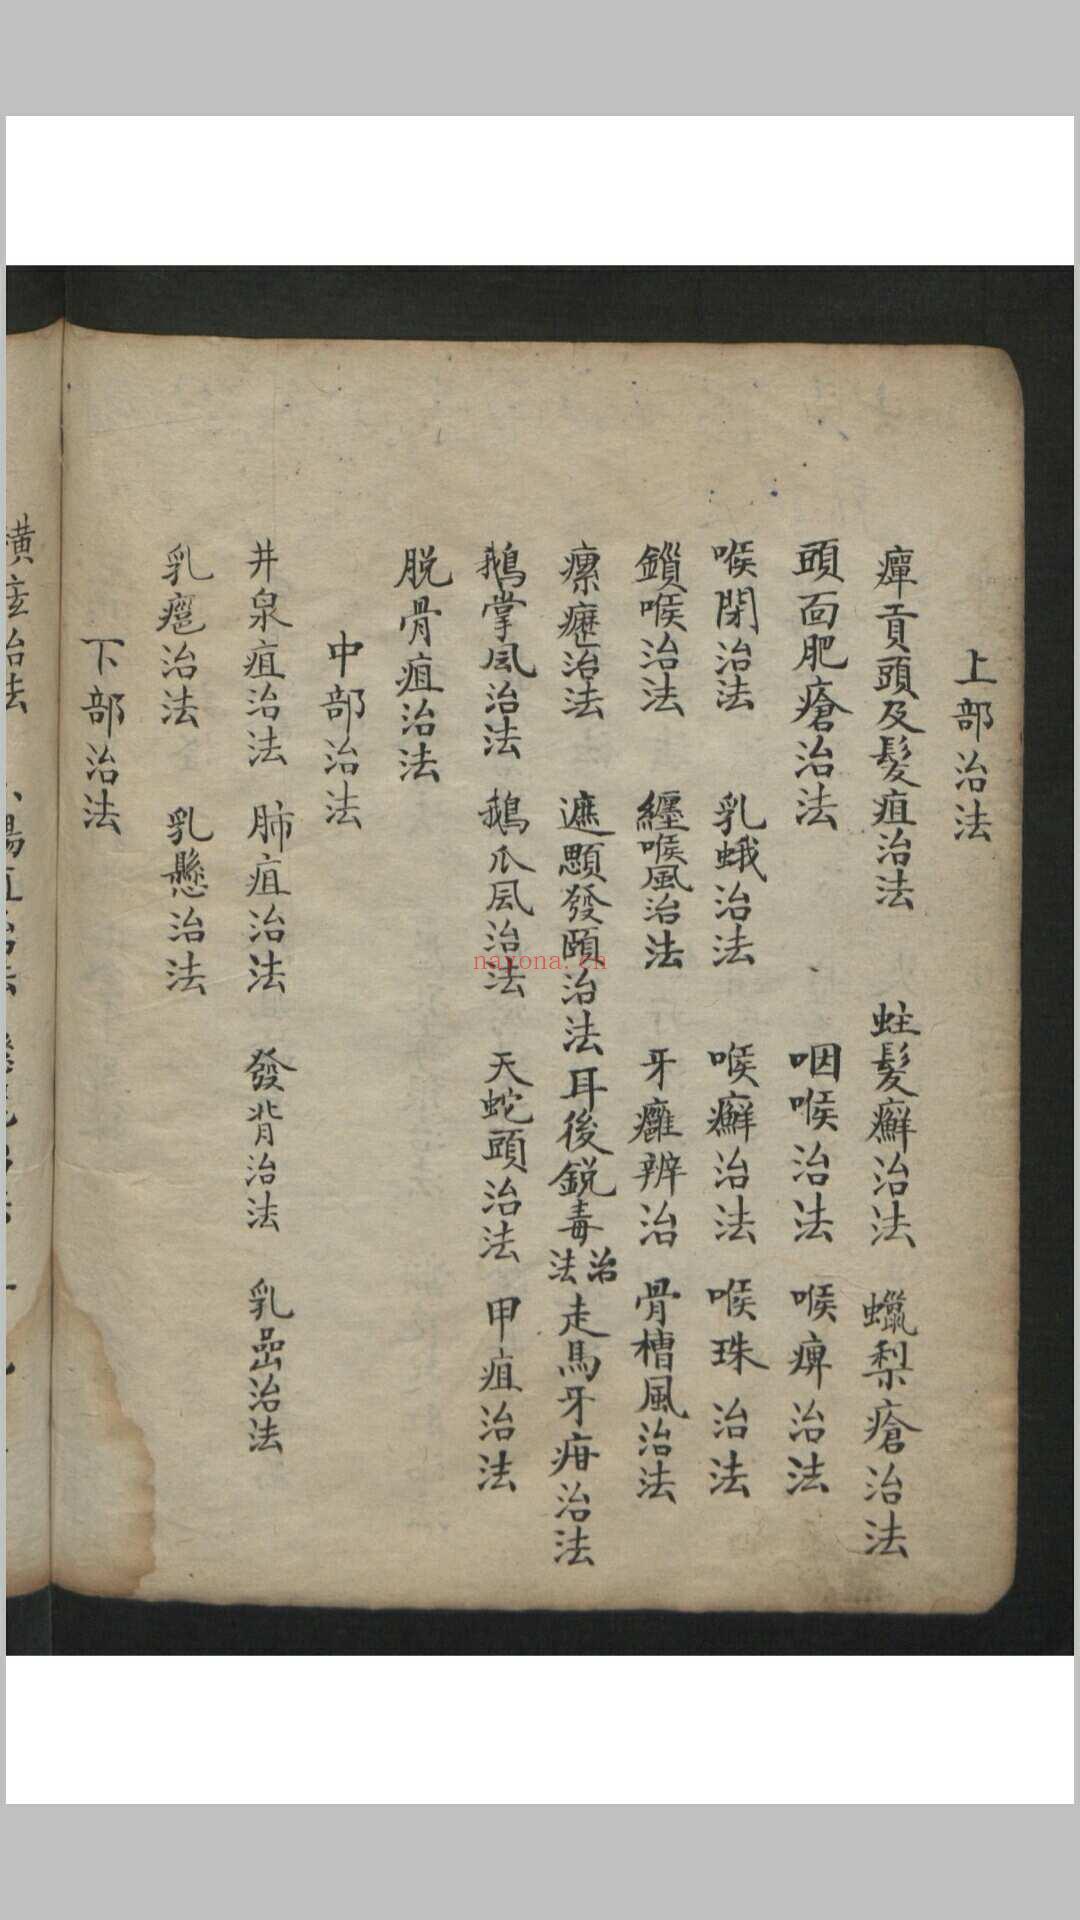 上部治法
癉貢頭及髮疽治法 蛀髮癬治法 蠟梨瘡治法
頭面肥瘡治法 咽喉治法 喉痹治法
喉閉治法 乳蛾治法 喉癬治法 喉珠治法
鎖喉治法 纏喉風治法 牙癰辨治 骨槽風治法
瘰癧治法 遮顋發頤治法 耳後銳毒治法 走馬牙疳治法
鵝掌風治法 鵝爪風治法 天蛇頭治法 甲疽治法
脱骨疽治法
中部治法
井泉疽治法 肺疽治法 發背治法 乳嵒治法
乳癰治法 乳懸治法
下部治法
橫痃治法
nayona.cn